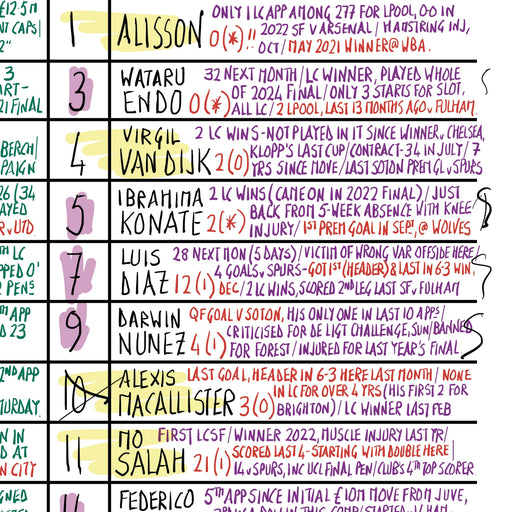 £12.5M
NT CAPS|
2"
1 ALISSON 0(*)!! ONLY 1 LC APP AMONG 277 FOR LPOOL, 0-0 IN
2022 SF V ARSENAL / HAMSTRING INJ,
OCT / MAY 2021 WINNER @ WBA.
3
ART-
21 FINAL
3 WATARU
ENDO 0(*) 32 NEXT MONTH / LC WINNER, PLAYED WHOLE
OF 2024 FINAL / ONLY 3 STARTS FOR SLOT,
ALL LC / 2 LPOOL, LAST 13 MONTHS AGO V FULHAM
BERCH/
PAIGN
4 VIRGIL
VAN DIJK 2(0) 2 LC WINS - NOT PLAYED IN IT SINCE WINNER V CHELSEA,
KLOPP'S LAST CUP / CONTRACT - 34 IN JULY / 7
YRS SINCE MOVE / LAST SOTON PREM GL V SPURS
26 (34
AYED
R V UTD
5 IBRAHIMA
KONATE 2(*) 2 LC WINS (CAME ON IN 2022 FINAL) / JUST
BACK FROM 5-WEEK ABSENCE WITH KNEE
INJURY / 1ST PREM GOAL IN SEPT, @ WOLVES
TH LC
PPED O'
2 PENS
7 LUIS
DIAZ 12(1) 28 NEXT MON (5 DAYS) / VICTIM OF WRONG VAR OFFSIDE HERE /
4 GOALS V SPURS - GOT 1ST (HEADER) & LAST IN 6-3 WIN,
DEC / 2 LC WINS, SCORED 2ND LEG LAST SF V FULHAM
TH APP
D 23
9 DARWIN
NUNEZ 4(1) QF GOAL V SOTON, HIS ONLY ONE IN LAST 10 APPS /
CRITICISED FOR DE LIGT CHALLENGE, SUN / BANNED
FOR FOREST / INJURED FOR LAST YEAR'S FINAL
2ND APP
TURDAY
10 ALEXIS
MACALLISTER 3(0) LAST GOAL, HEADER IN 6-3 HERE LAST MONTH / NONE
IN LC FOR OVER 4 YRS (HIS FIRST 2 FOR
BRIGHTON) / LC WINNER LAST FEB
N IN
D AT
N CITY
11 MO
SALAH 21(1) FIRST LC SF / WINNER 2022, MUSCLE INJURY LAST YR /
SCORED LAST 4 - STARTING WITH DOUBLE HERE |
14 V SPURS, INC UCL FINAL PEN / CLUB'S 4TH TOP SCORER
GNED
FEDERICO 5TH APP SINCE INITIAL £10M MOVE FROM JUVE,